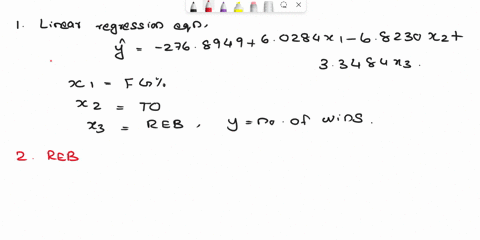 1. Linear regression eqn,
ŷ = -276.8949 + 6.0284x1 - 6.8230x2 +
3.3484x3.
x1 = FG%
x2 = TO
x3 = REB, y = no. of wins.
2. REB